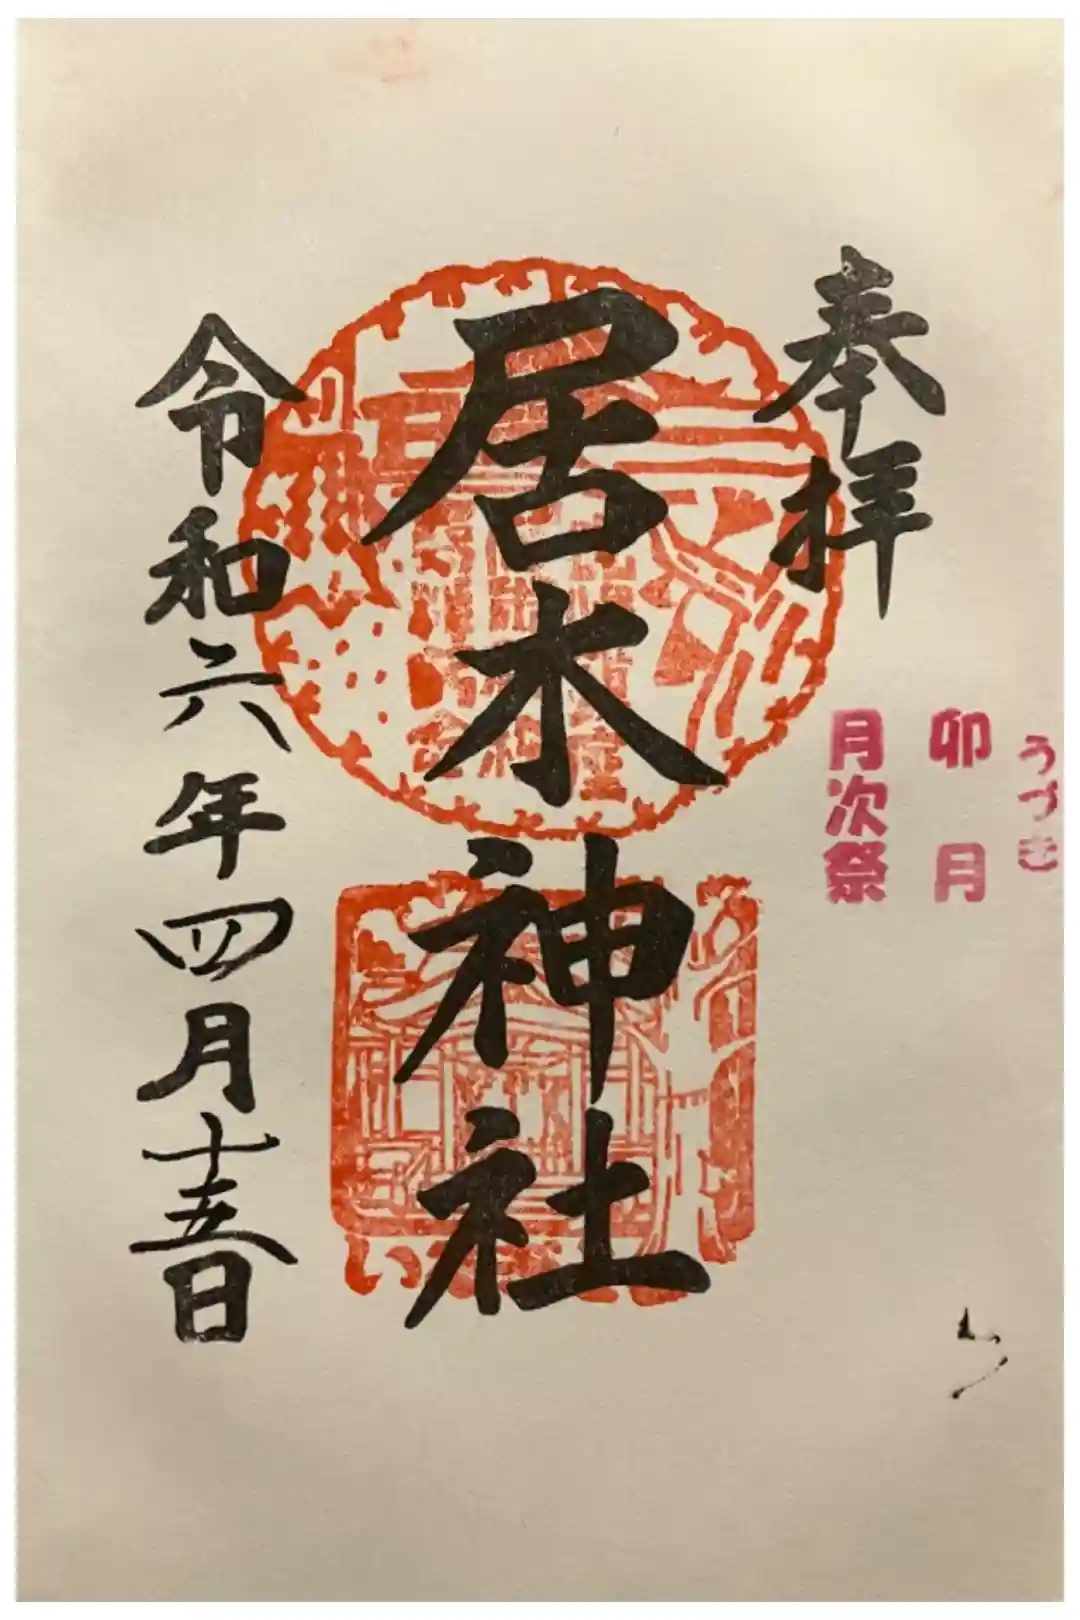 奉拝
うづき
卯月
月次祭
居木神社
令和六年四月十五日